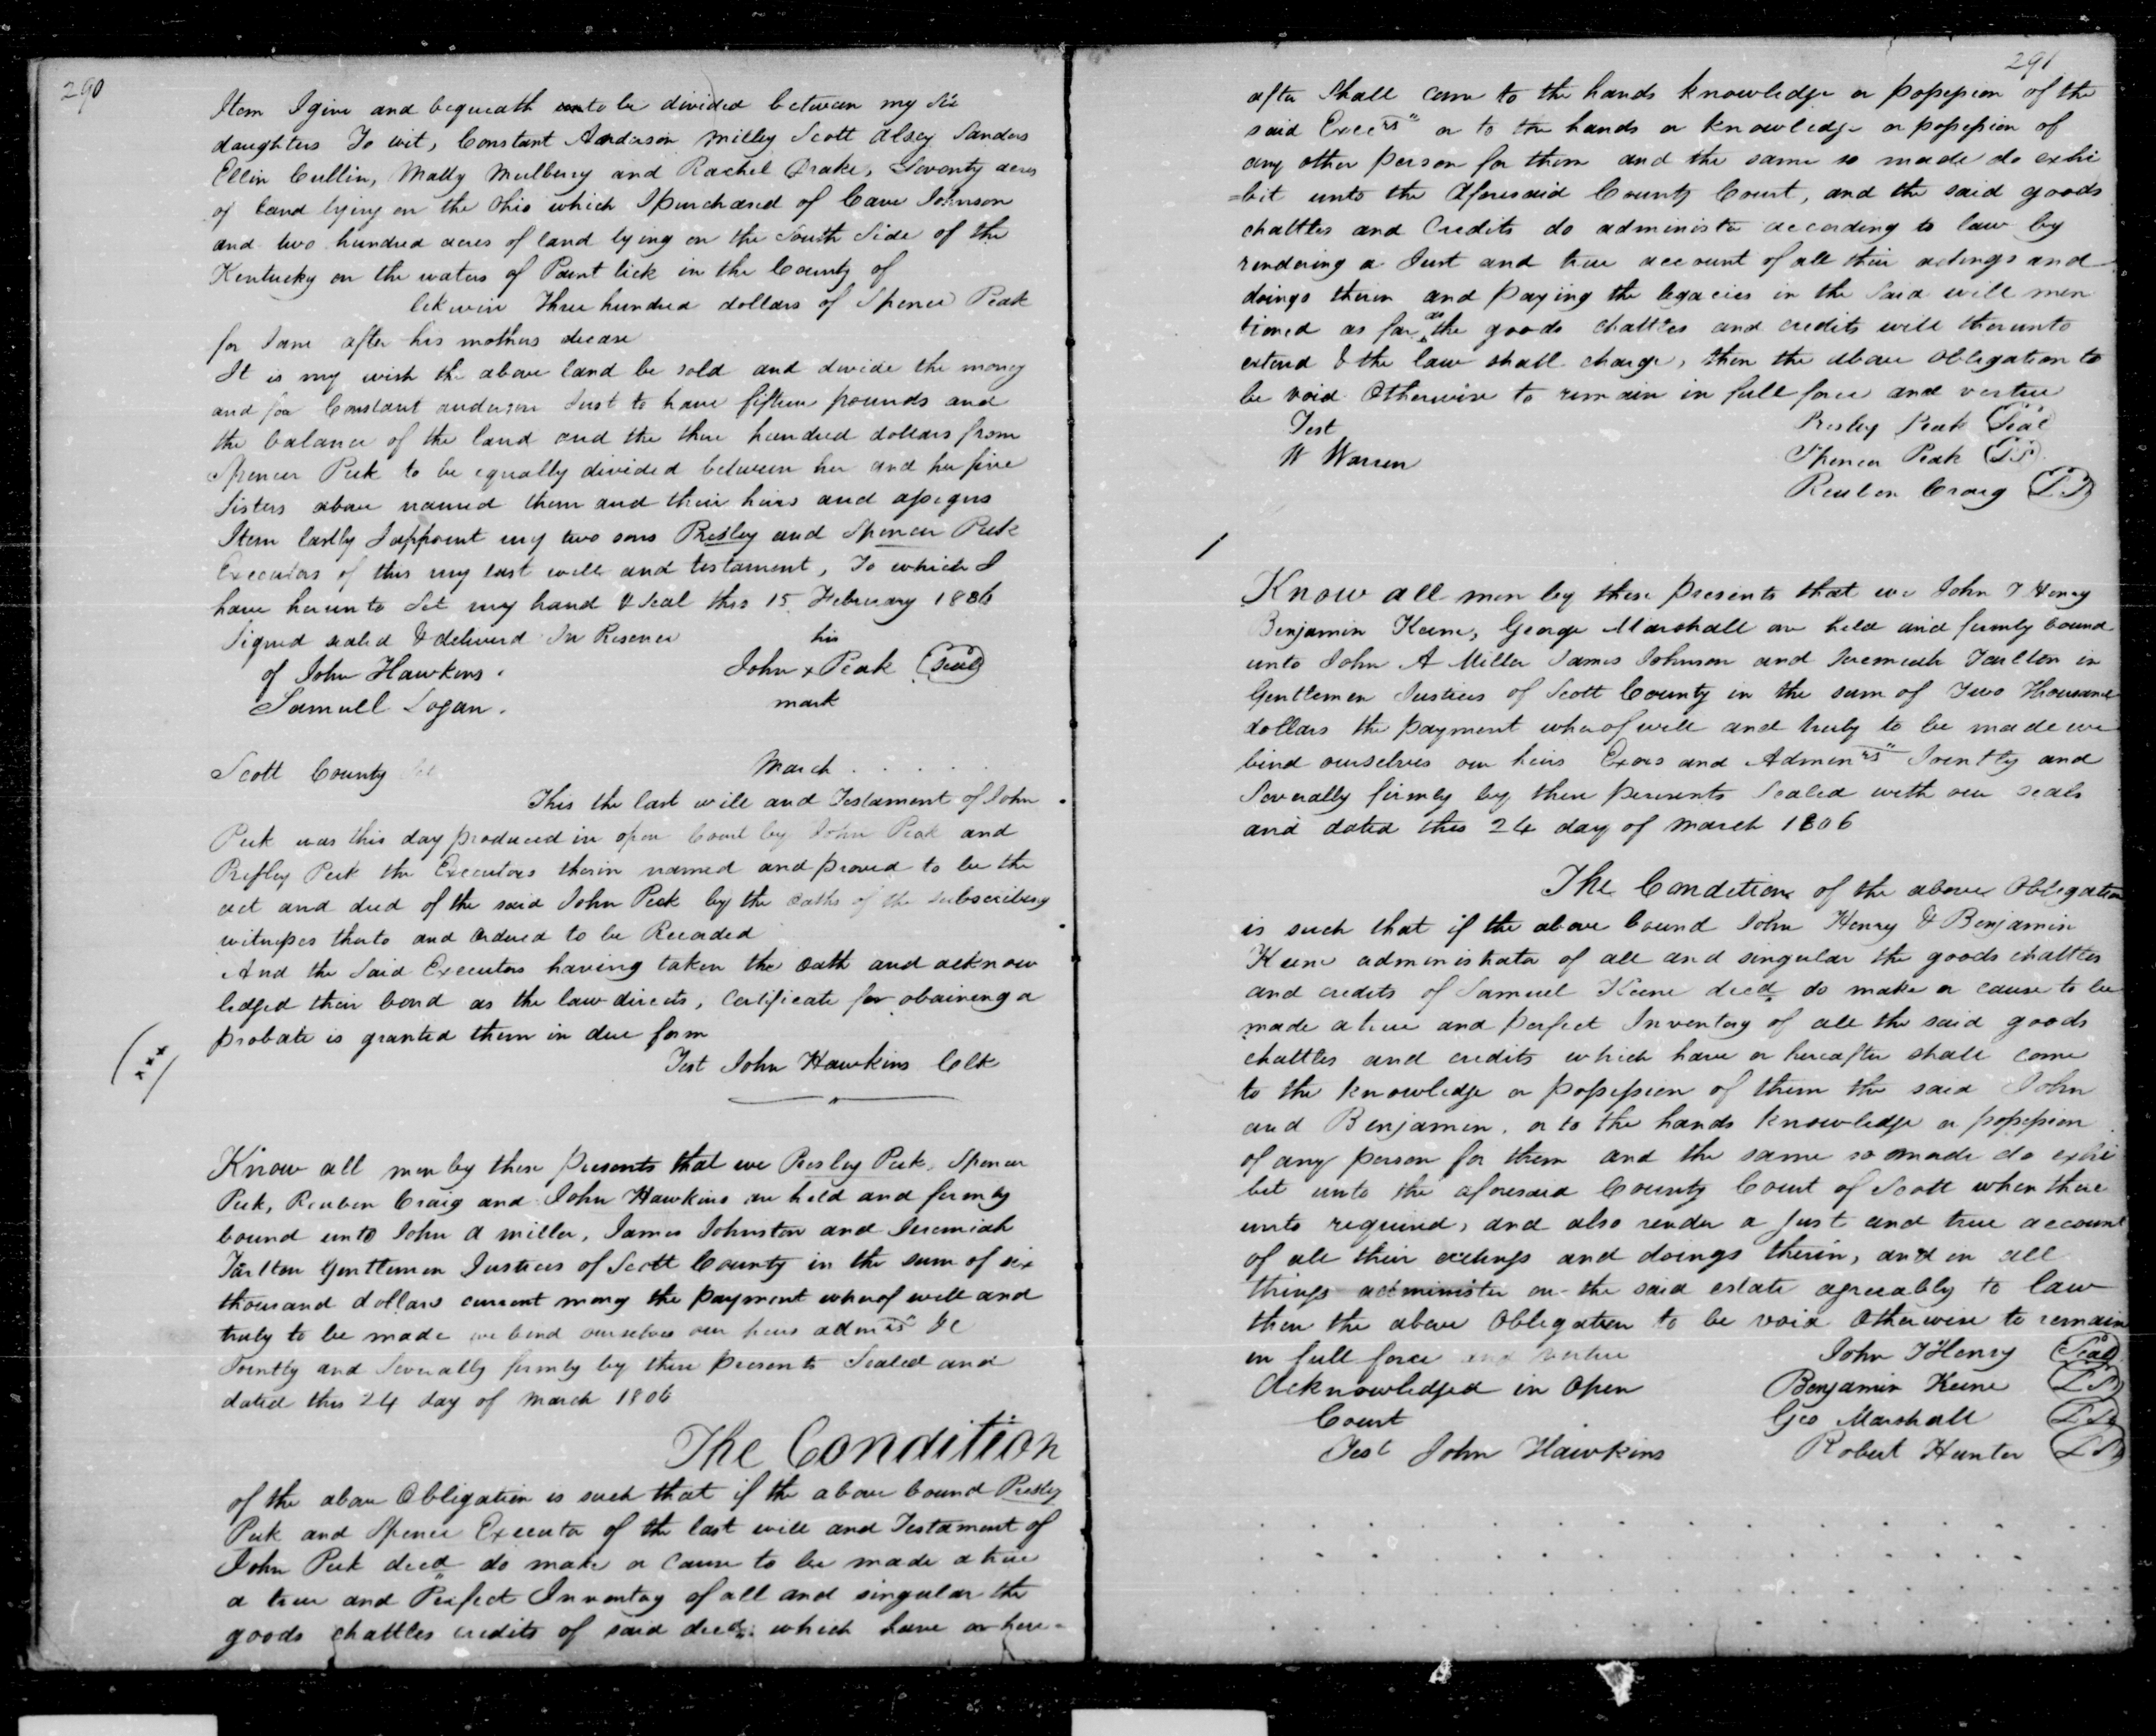 290
Item I give and bequeath unto be divided between my six
daughters To wit, Constant Anderson Milley Scott Alsey Sanders
Ellin Cullin, Matty Mulberry and Rachel Drake, Seventy acres
of land lying on the Ohio which I purchased of Cave Johnson
and two hundred acres of land lying on the South Side of the
Kentucky on the waters of Paint lick in the County of
likewise Three hundred dollars of Spencer Peak
for Jane after his mothers decease
It is my wish the above land be sold and devide the money
and for Constant anderson Just to have fifteen pounds and
the balance of the land and the three hundred dollars from
Spencer Peek to be equally divided between her and her five
Sisters above named them and their heirs and assigns
Item lastly I appoint my two sons Presley and Spencer Peek
Executors of this my last will and testament, To which I
have hereunto Set my hand & Seal this 15 February 1806
Signed sealed & deliverd In Presence
of John Hawkins.
Samuell Logan.
his
John x Peak (Seal)
mark
Scott County Sct March . . . . .
This the last will and Testament of John
Peek was this day produced in open Court by John Peak and
Presley Peek the Executors therein named and proved to be the
act and deed of the said John Peek by the oaths of the subscribing
witnesses thereto and Ordered to be Recorded
And the Said Executors having taken the oath and acknow
ledged their bond as the law directs, Certificate for obaining a
probate is granted them in due form
Test John Hawkins Clk
Know all men by these Presents that we Presley Peek, Spencer
Peek, Reuben Craig and John Hawkins are held and firmly
bound unto John A Miller, James Johnston and Jeremiah
Tarlton Gentlemen Justices of Scott County in the sum of six
thousand dollars current money the payment whereof well and
truly to be made we bend ourselves our heirs admrs &c
Jointly and Severally firmly by these presents Sealed and
dated this 24 day of March 1806
The Condition
of the above Obligation is such that if the above bound Presley
Peek and Spence Executor of the last will and Testament of
John Peek decd do make or Cause to be made a true
a true and Perfect Inventory of all and singular the
goods chattles credits of said decd. which have or here=
291
after Shall come to the hands knowledge or possession of the
said Excers or to the hands or knowledge or possession of
any other person for them and the same so made do exhi
=bit unto the Aforesaid County Court, and the said goods
chattles and Credits do administer according to law by
rendering a Just and true account of all their actings and
doings therin and paying the legacies in the Said will men
tioned as far as the goods chattles and credits will therunto
extend & the law shall charge, then the above Obligation to
be void Otherwise to remain in full force and vertue
Test
W Warren
Presley Peak (Seal)
Spencer Peak (LS)
Reuben Craig (LS)
Know all men by these Presents that we John T Henry
Benjamin Keene, George Marshall are held and firmly bound
unto John A Miller James Johnson and Jeremiah Tarlton in
Gentlemen Justices of Scott County in the sum of Two Thousand
dollars the payment whereof well and truly to be made we
bind ourselves our heirs Exors and Adminrs Jointly and
Severally firmly by these presents Sealed with our seals
and dated this 24 day of March 1806
The Condition of the above Obligation
is such that if the above bound John Henry & Benjamin
Keene administrator of all and singular the goods chattles
and credits of Samuel Keene decd do make or cause to be
made a true and perfect Inventory of all the said goods
chattles and credits which have or hereafter shall come
to the knowledge or possession of them the said John
and Benjamin, or to the hands knowledge or possession
of any person for them and the same so made do exhi
bit unto the aforesaid County Court of Scott when there
unto required, and also render a Just and true account
of all their actings and doings therin, and in all
things administer on the said estate agreeably to law
then the above Obligation to be void Otherwise to remain
in full force and vertue
Acknowledged in Open
Court
Test John Hawkins
John T Henry (Seal)
Benjamin Keene (LS)
Geo Marshall (LS)
Robert Hunter (LS)